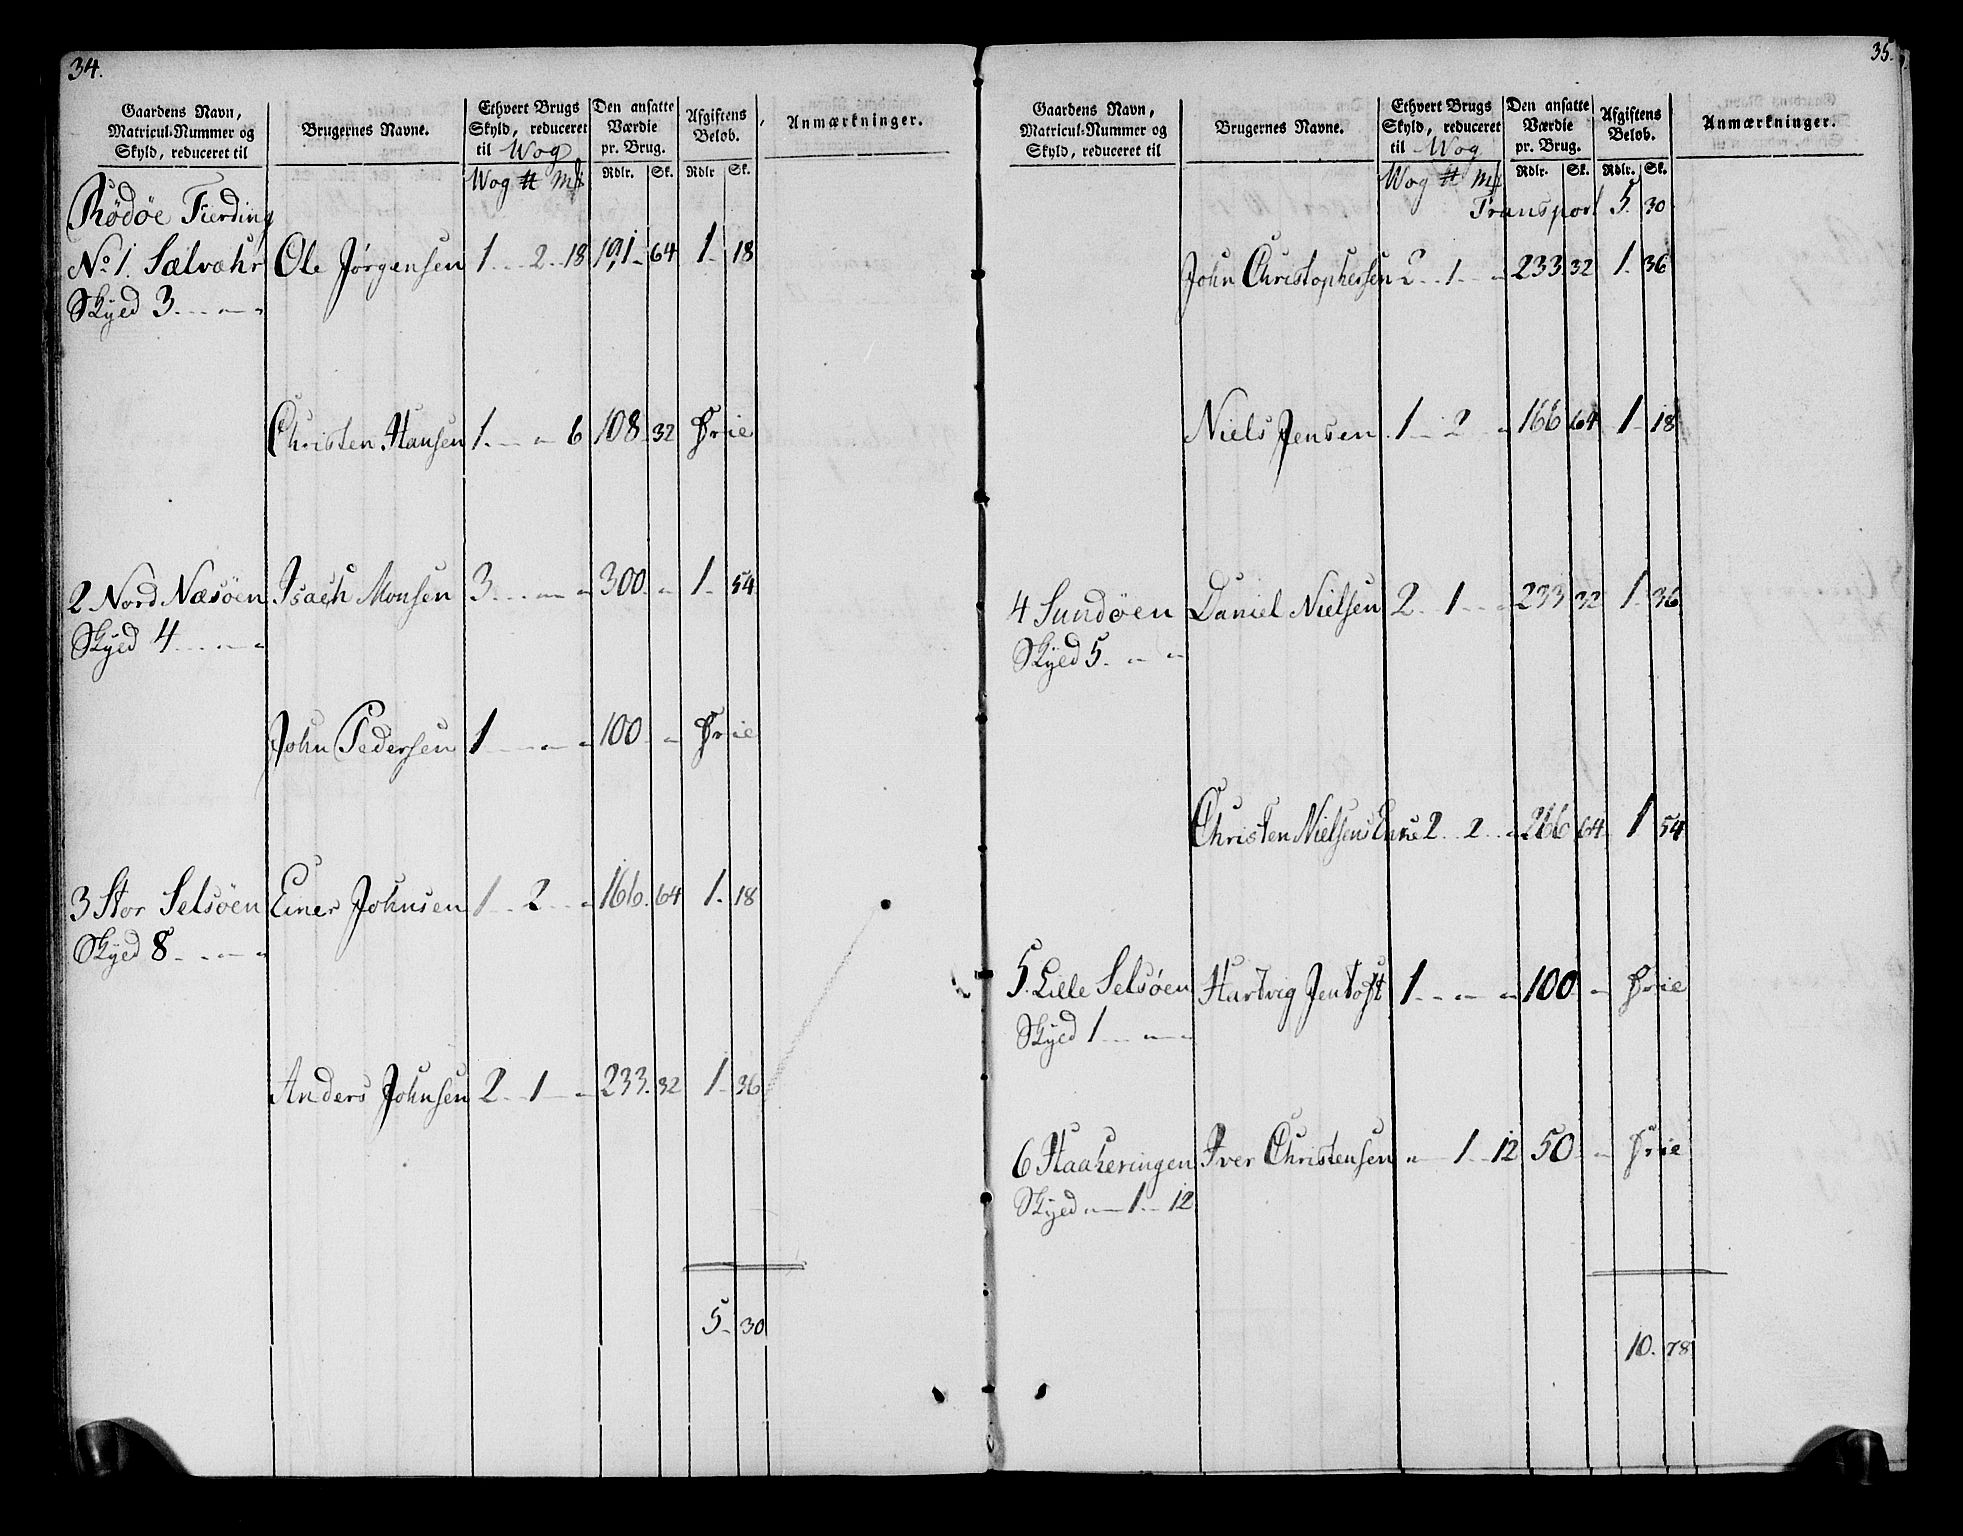 34.
Gaardens Navn, Matricul-Nummer og Skyld, reduceret til
Brugernes Navne.
Ethvert Brugs Skyld, reduceret til Wog
Den ansatte Værdie pr. Brug.
Afgiftens Beløb.
Anmærkninger.
Wog # Mk Rdlr. Sk. Rdlr Sk.
Rödöe Fierding
No 1. Sælvahr Ole Jørgensen 1 2 18 191 64 1 18
Skyld 3
Christen Hansen 1 " 6 108 32 Frie
2 Nord Næsöen Isach Monsen 3 " " 300 " 1 54
Skyld 4
John Pedersen 1 " " 100 " Frie
3 Stor Selsöen Einer Johnsen 1 2 " 166 64 1 18
Skyld 8
Anders Johnsen 2 1 " 233 32 1 36
5 30
35.
Gaardens Navn, Matricul-Nummer og Skyld, reduceret til
Brugernes Navne.
Ethvert Brugs Skyld, reduceret til Wog
Den ansatte Værdie pr. Brug.
Afgiftens Beløb.
Anmærkninger.
Wog # Mk Rdlr. Sk. Rdlr. Sk.
Transport 5 30
John Christophersen 2 1 " 233 32 1 36
Niels Jensen 1 2 " 166 64 1 18
4 Sundöen Daniel Nielsen 2 1 " 233 32 1 36
Skyld 5 " "
Christen Nielsens Enke 2 2 " 266 64 1 54
5. Lille Selsöen Hartvig Jentoft 1 " " 100 " Frie
Skyld 1 " "
6 Haakeringen Iver Christensen " 1 12 50 " Frie
Skyld " 1 12
10. 78